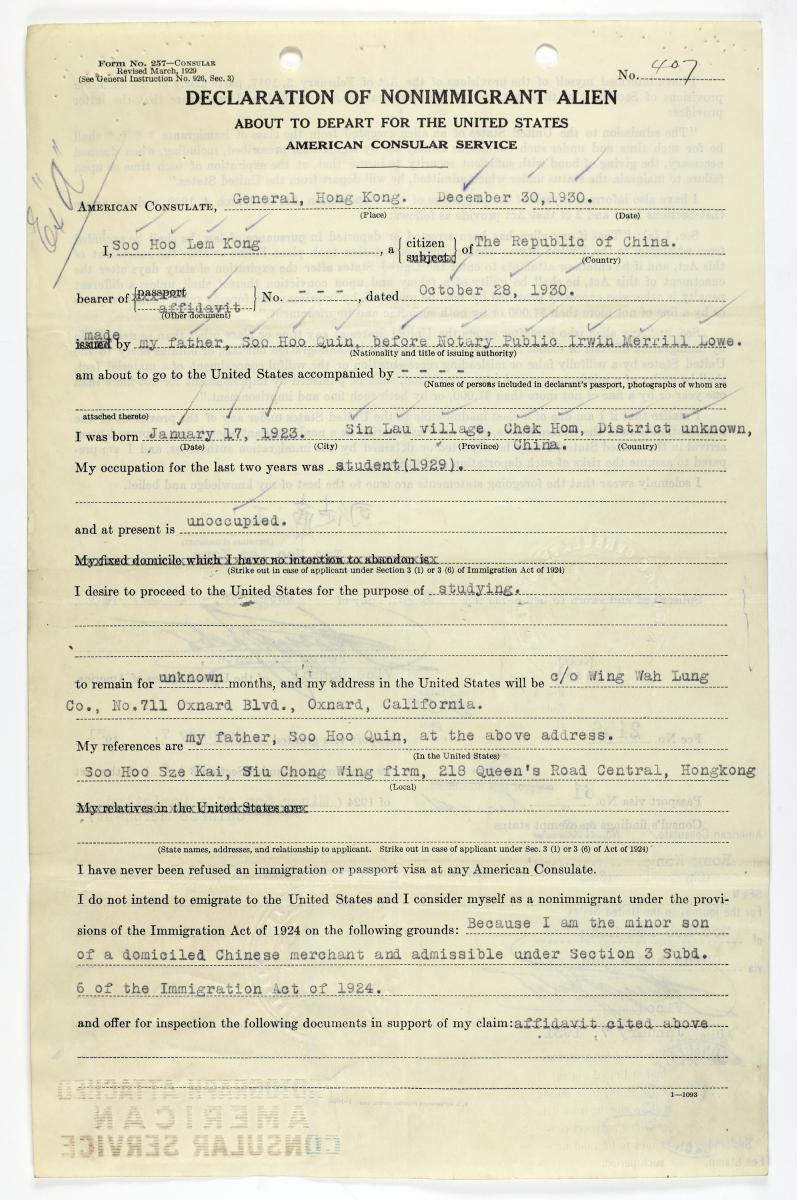 Form No. 257—Consular
Revised March, 1929
(See General Instruction No. 926, Sec. 3)
No. 407
DECLARATION OF NONIMMIGRANT ALIEN
ABOUT TO DEPART FOR THE UNITED STATES
AMERICAN CONSULAR SERVICE
Ex "A"
American Consulate, General, Hong Kong. December 30, 1930.
(Place) (Date)
I, Soo Hoo Lem Kong, a { citizen subject } of The Republic of China.
(Country)
bearer of { passport affidavit } No. - - -, dated October 28, 1930.
(Other document)
made
issued by my father, Soo Hoo Quin, before Notary Public Irwin Merrill Lowe.
(Nationality and title of issuing authority)
am about to go to the United States accompanied by - - - -
(Names of persons included in declarant's passport, photographs of whom are
attached thereto)
I was born January 17, 1923. Sin Lau village, Chek Hom, District unknown,
(Date) (City) (Province) China. (Country)
My occupation for the last two years was student(1929).
and at present is unoccupied.
My fixed domicile which I have no intention to abandon is
(Strike out in case of applicant under Section 3 (1) or 3 (6) of Immigration Act of 1924)
I desire to proceed to the United States for the purpose of studying.
to remain for unknown months, and my address in the United States will be c/o Wing Wah Lung
Co., No.711 Oxnard Blvd., Oxnard, California.
My references are my father, Soo Hoo Quin, at the above address.
(In the United States)
Soo Hoo Sze Kai, Siu Chong Wing firm, 218 Queen's Road Central, Hongkong
(Local)
My relatives in the United States are
(State names, addresses, and relationship to applicant. Strike out in case of applicant under Sec. 3 (1) or 3 (6) of Act of 1924)
I have never been refused an immigration or passport visa at any American Consulate.
I do not intend to emigrate to the United States and I consider myself as a nonimmigrant under the provi-
sions of the Immigration Act of 1924 on the following grounds: Because I am the minor son
of a domiciled Chinese merchant and admissible under Section 3 Subd.
6 of the Immigration Act of 1924.
and offer for inspection the following documents in support of my claim: affidavit cited above
1—1093
PHOTOGRAPH ATTACHED
AMERICAN
CONSULAR SERVICE